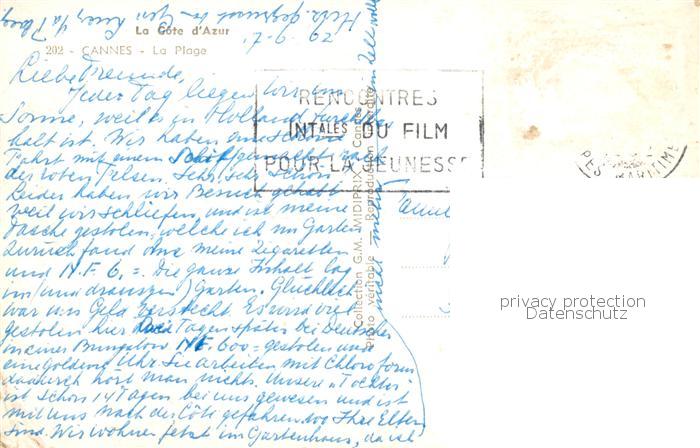 La Côte d'Azur
202 - CANNES - La Plage
Liebe Freunde,
Jeden Tag liegen wir in
Sonne, weil es in Holland
kalt ist. Wir haben eine schöne
Fahrt mit einem Boot gemacht nach
der roten Felsen. Sehr, sehr schön
Leider haben wir Besuch gehabt
weil wir schliefen, und ist meine
Tasche gestolen, welche ich im Garten
zurück fand ohne meine Zigaretten
und N.F. 6,=. Die ganze Inhalt lag
im (und draussen) Garten. Glücklich
war uns Geld versteckt. Es wird viel
gestolen hier. Drei Tagen später bei Deutscher
in einer Bungalow N.F. 600= gestolen und
eine goldene Uhr. Sie arbeiten mit Chloroform
dadurch hört man nichts. Unsere "Tochter"
ist schon 14 Tagen bei uns gewesen und ist
mit uns nach der Côte gefahren wo Ihre Eltern
sind. Wir wohnen jetzt im Gartenhaus, da ist
RENCONTRES
INTALES DU FILM
POUR LA JEUNESSE
Collection G.M. MIDIPRIX - Cannes
Photo véritable - Reproduction interdite
MARITIME
privacy protection
Datenschutz